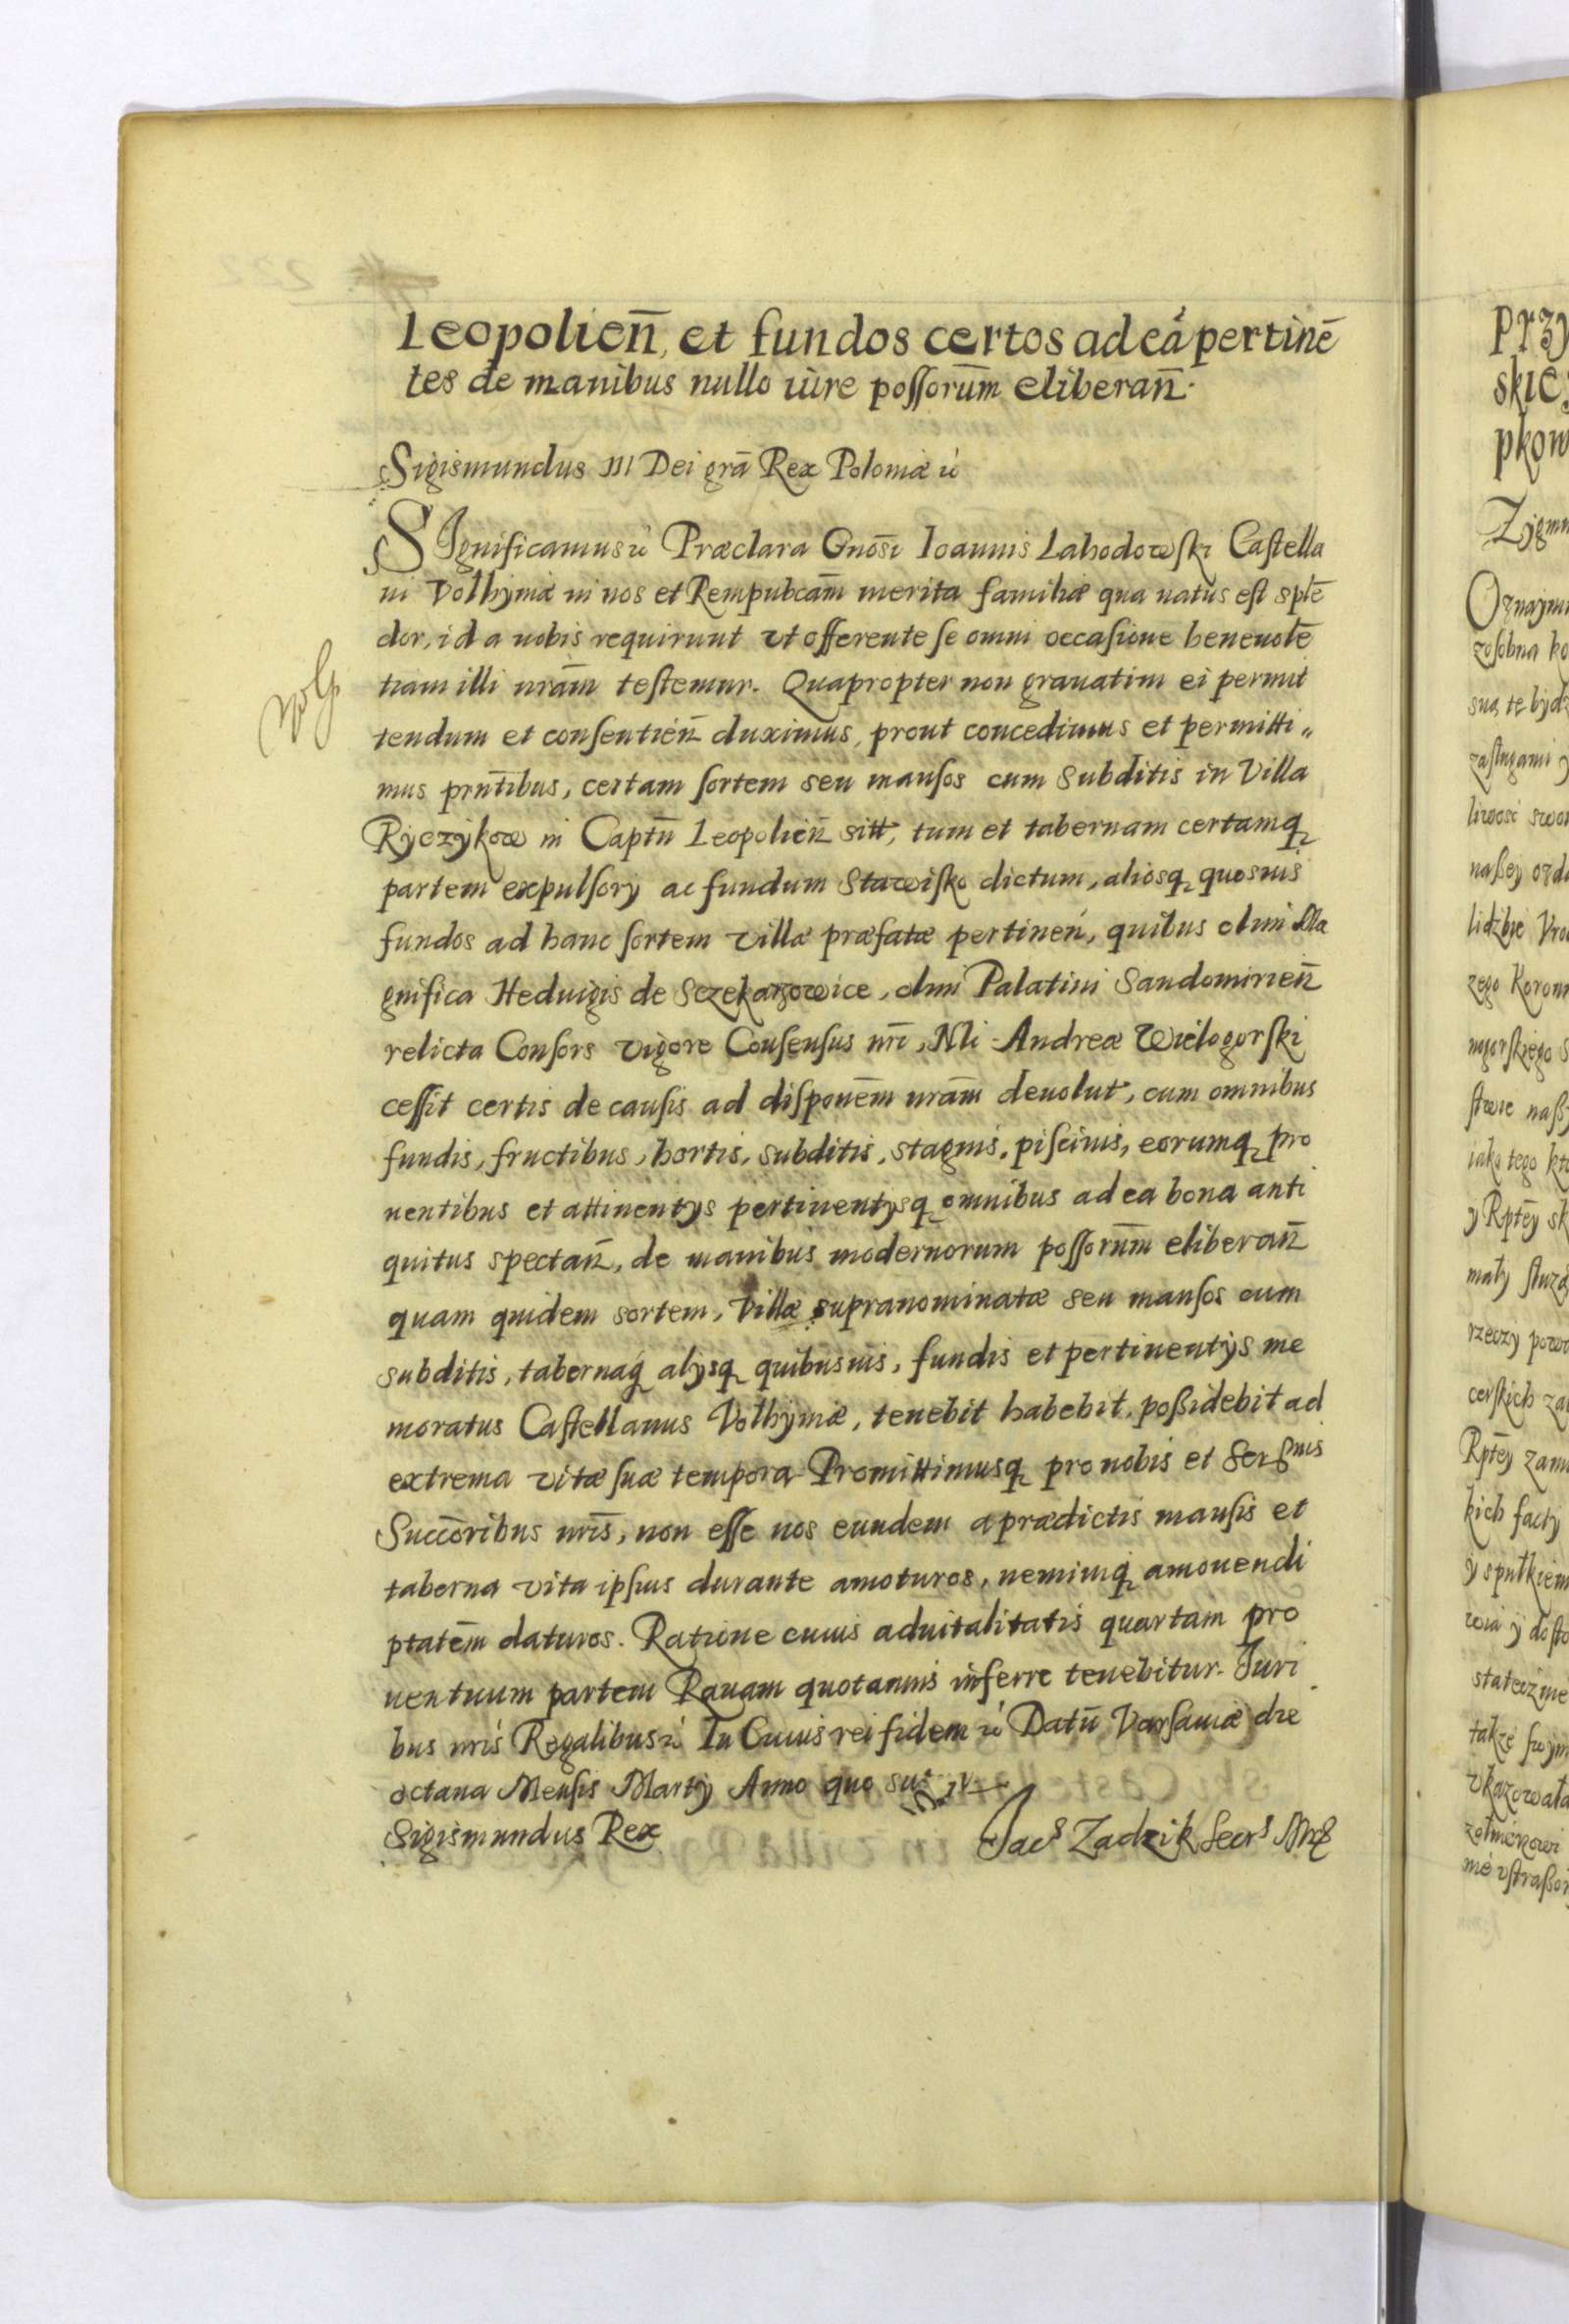 Leopolieñ, et fundos certos ad eá pertinē
tes de manibus nullo iúre possorum̄ eliberañ.
Sigismundus III Dei grā Rex Poloniæ ú
SIgnificamus ú Præclara Gnosī Ioannis Lahodowski Castella
ni Volhyniæ in nos et Rempubcam̄ merita familiæ qua natus est splē
dor, id a nobis requirunt vt offerente se omni occasione beneuolē
tiam illi nram̄ testemur. Quapropter non grauatim ei permit
tendum et consentieñ duximus, prout concedimus et permitti„
mus prntibus, certam sortem seu mansos cum subditis in Villa
Ryczykow in Captū Leopolieñ sitt, tum et tabernam certamq
partem expulsory ac fundum Stawisko dictum, aliosq quosuis
fundos ad hanc sortem villæ præfatæ pertineń, quibus olim Ma
gnifica Heduigis de Sczekarzowice, olim Palatini Sandomirieñ
relicta Consors vigore Consensus nrī, Nli Andreæ Wielogorski
cessit certis de causis ad disponem̄ nram̄ deuolut, cum omnibus
fundis, fructibus, hortis, subditis, stagnis, piscinis, eorumq pro
uentibus et attinentys pertinentysq omnibus ad ea bona anti
quitus spectañ, de manibus modernorum possorum̄ eliberañ
quam quidem sortem, Villæ supranominatæ seu mansos cum
subditis, tabernaq alysq quibusuis, fundis et pertinentys me
moratus Castellanus Volhyniæ, tenebit habebit, possidebit ad
extrema vitæ suæ tempora Promittimusq pro nobis et Sersmis
Succōribus nrīs, non esse nos eundem a prædictis mansis et
taberna vita ipsius durante amoturos, neminiq amouendi
ptatem̄ daturos. Ratione cuius aduitalitatis quartam pro
uentuum partem Rauam quotannis inferre tenebitur. Iuri
bus nris Regalibus ú In Cuius rei fidem ú Datū Varsauiæ die
octaua Mensis Marty Anno quo sup
Sigismundus Rex Jacs Zadzik Secrs